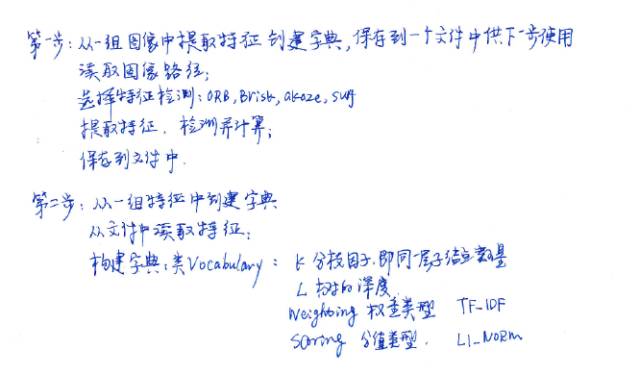 第一步：从一组图像中提取特征创建字典，保存到一个文件中供下一步使用
读取图像路径；
选择特征检测：ORB, Brisk, akaze, surf
提取特征．检测并计算；
保存到文件中．
第二步：从一组特征中创建字典
从文件中读取特征；
构建字典：类Vocabulary： K 分枝因子．即同一层子结点数量
L 树的深度
Weighting 权重类型 TF_IDF
Scoring 分值类型． L1_NORM